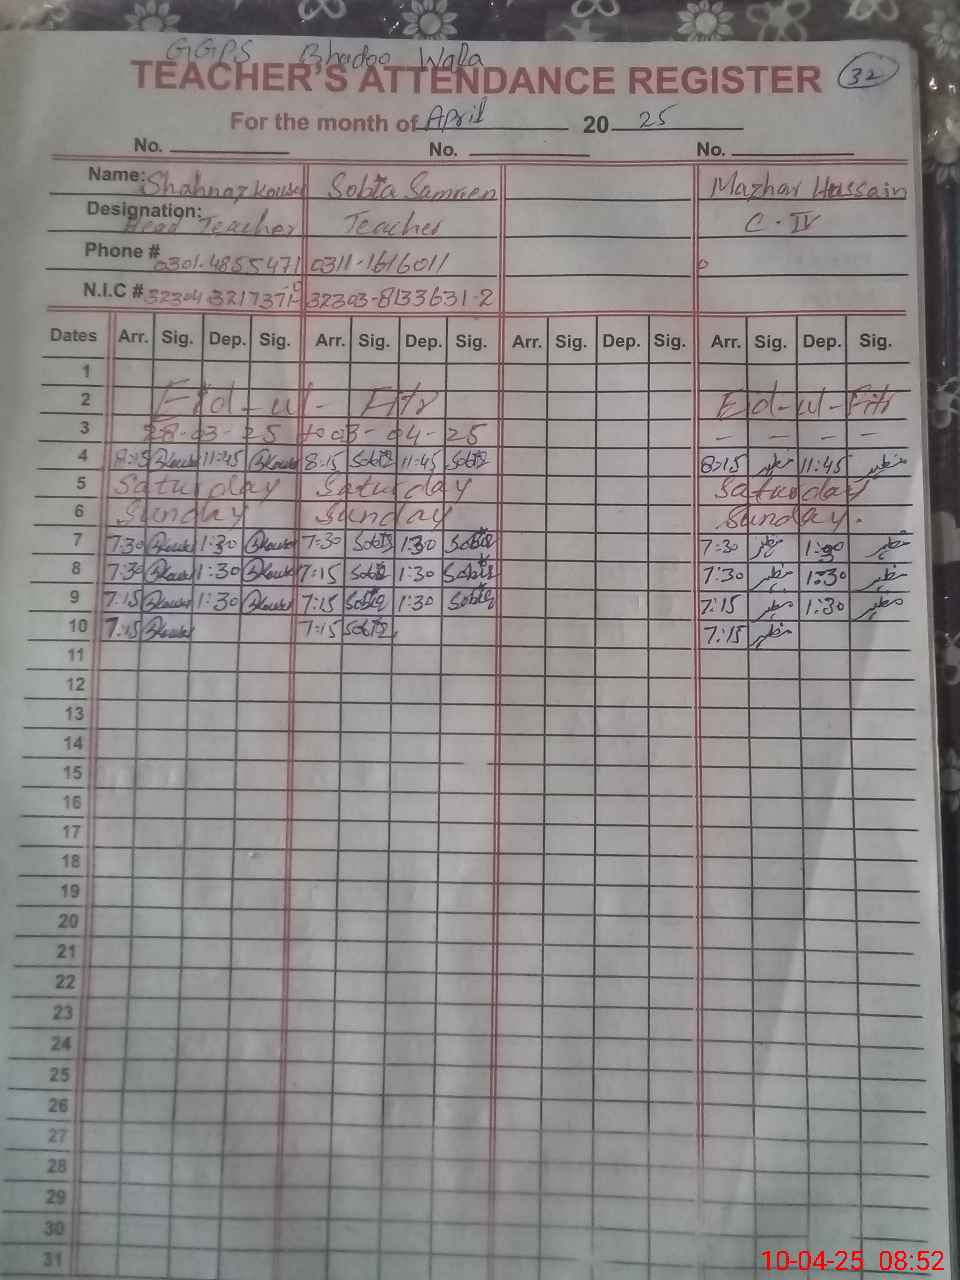 GGPS Bhadoo Wala
TEACHER'S ATTENDANCE REGISTER 32
For the month of April 20 25
No. No. No.
Name: Shahnaz Kouser Sobia Samreen Mazhar Hussain
Designation: Head Teacher Teacher C-IV
Phone # 0301-4855471 0311-1616011
N.I.C # 32304 3217371-0 32303-8133631-2
Dates Arr. Sig. Dep. Sig. Arr. Sig. Dep. Sig. Arr. Sig. Dep. Sig. Arr. Sig. Dep. Sig.
1
2 Eid-ul-Fitr Eid-ul-Fitr
3 28-03-25 to 03-04-25 - - - -
4 8:15 Kouser 11:45 Kouser 8:15 Sobia 11:45 Sobia 8:15 مظہر 11:45 مظہر
5 Saturday Saturday Saturday
6 Sunday Sunday Sunday.
7 7:30 Kouser 1:30 Kouser 7:30 Sobia 1:30 Sobia 7:30 مظہر 1:30 مظہر
8 7:30 Kouser 1:30 Kouser 7:15 Sobia 1:30 Sobia 7:30 مظہر 1:30 مظہر
9 7:15 Kouser 1:30 Kouser 7:15 Sobia 1:30 Sobia 7:15 مظہر 1:30 مظہر
10 7:15 Kouser 7:15 Sobia 7:15 مظہر
11
12
13
14
15
16
17
18
19
20
21
22
23
24
25
26
27
28
29
30
31
10-04-25 08:52